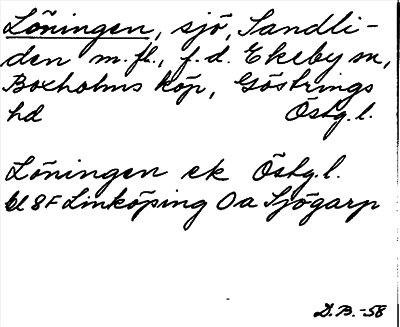 Löningen, sjö, Sandli-
den m.fl., f.d. Ekeby sn,
Boxholms köp, Göstrings
hd Östg.l.
Löningen ek Östg.l.
bl 8F Linköping Oa Sjögarp
D.B.-58